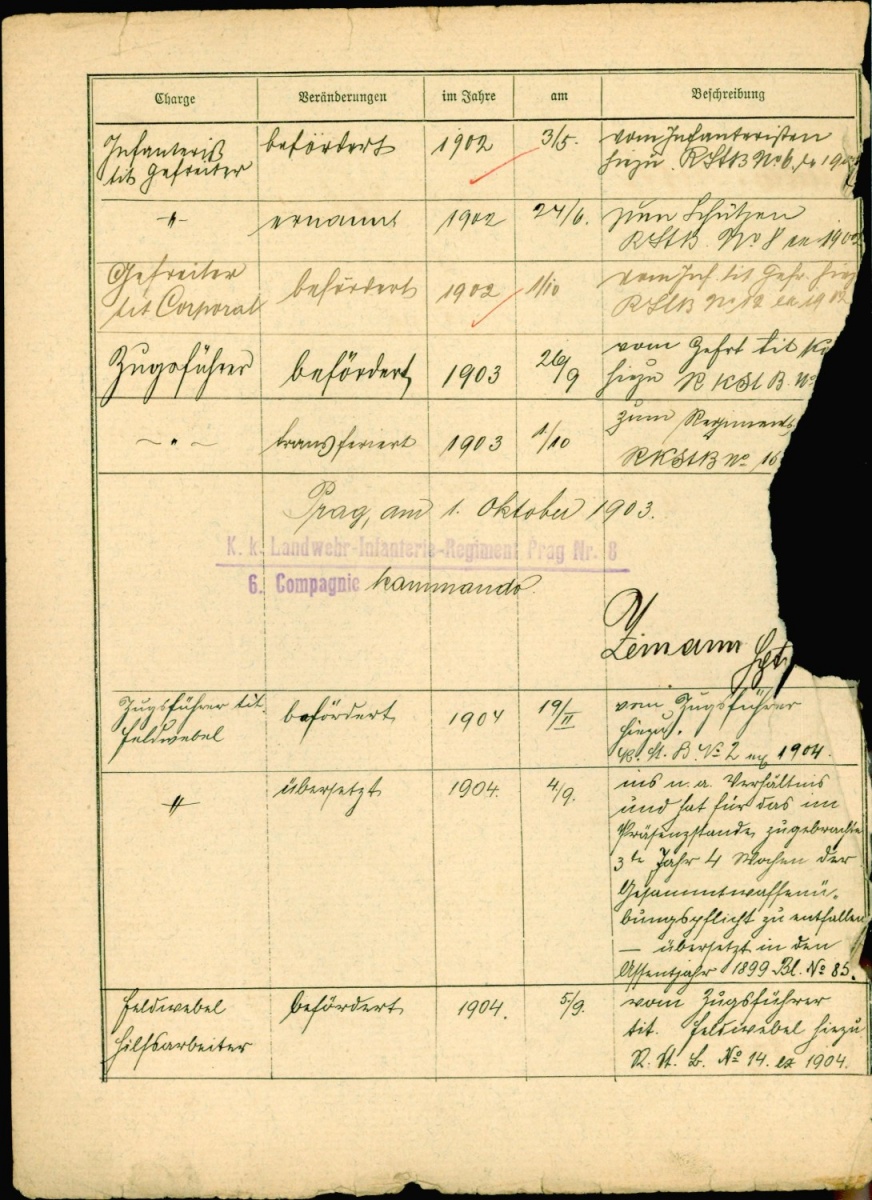 Charge Veränderungen im Jahre am Beschreibung
Infanterist befördert 1902 3/5. vom Infanteristen
tit Gefreiter hiezu. RStB No 6 ex 190
〃 ernannt 1902 24/6. zum Schützen
RStB. No 8 ex 1902
Gefreiter befördert 1902 1/10 vom Inf. tit Gefr. hiezu
tit Corporal RStB No 12 ex 1902
Zugsführer befördert 1903 26/9 vom Gefrt tit
hiezu R KSt B. No
〃 transferiert 1903 1/10 zum Regiments
RKStB No 16
Prag, am 1. Oktober 1903.
K. k. Landwehr-Infanterie-Regiment Prag Nr. 8
6. Compagnie kommando.
Zemann
Zugsführer tit. befördert 1904 19/II vom Zugsführer
Feldwebel hiezu.
St. B. No 2 ex 1904.
〃 übersetzt 1904. 4/9. ins n. a. Verhältnis
und hat für das im
Präsenzstande zugebrachte
3te Jahr 4 Wochen der
Gesammtwaffenü-
bungspflicht zu entfallen
— übersetzt in den
Assentjahr 1899 Bl. No 85.
Feldwebel befördert 1904. 5/9. vom Zugsführer
Hilfsarbeiter tit. Feldwebel hiezu
R. St. B. No 14. ex 1904.